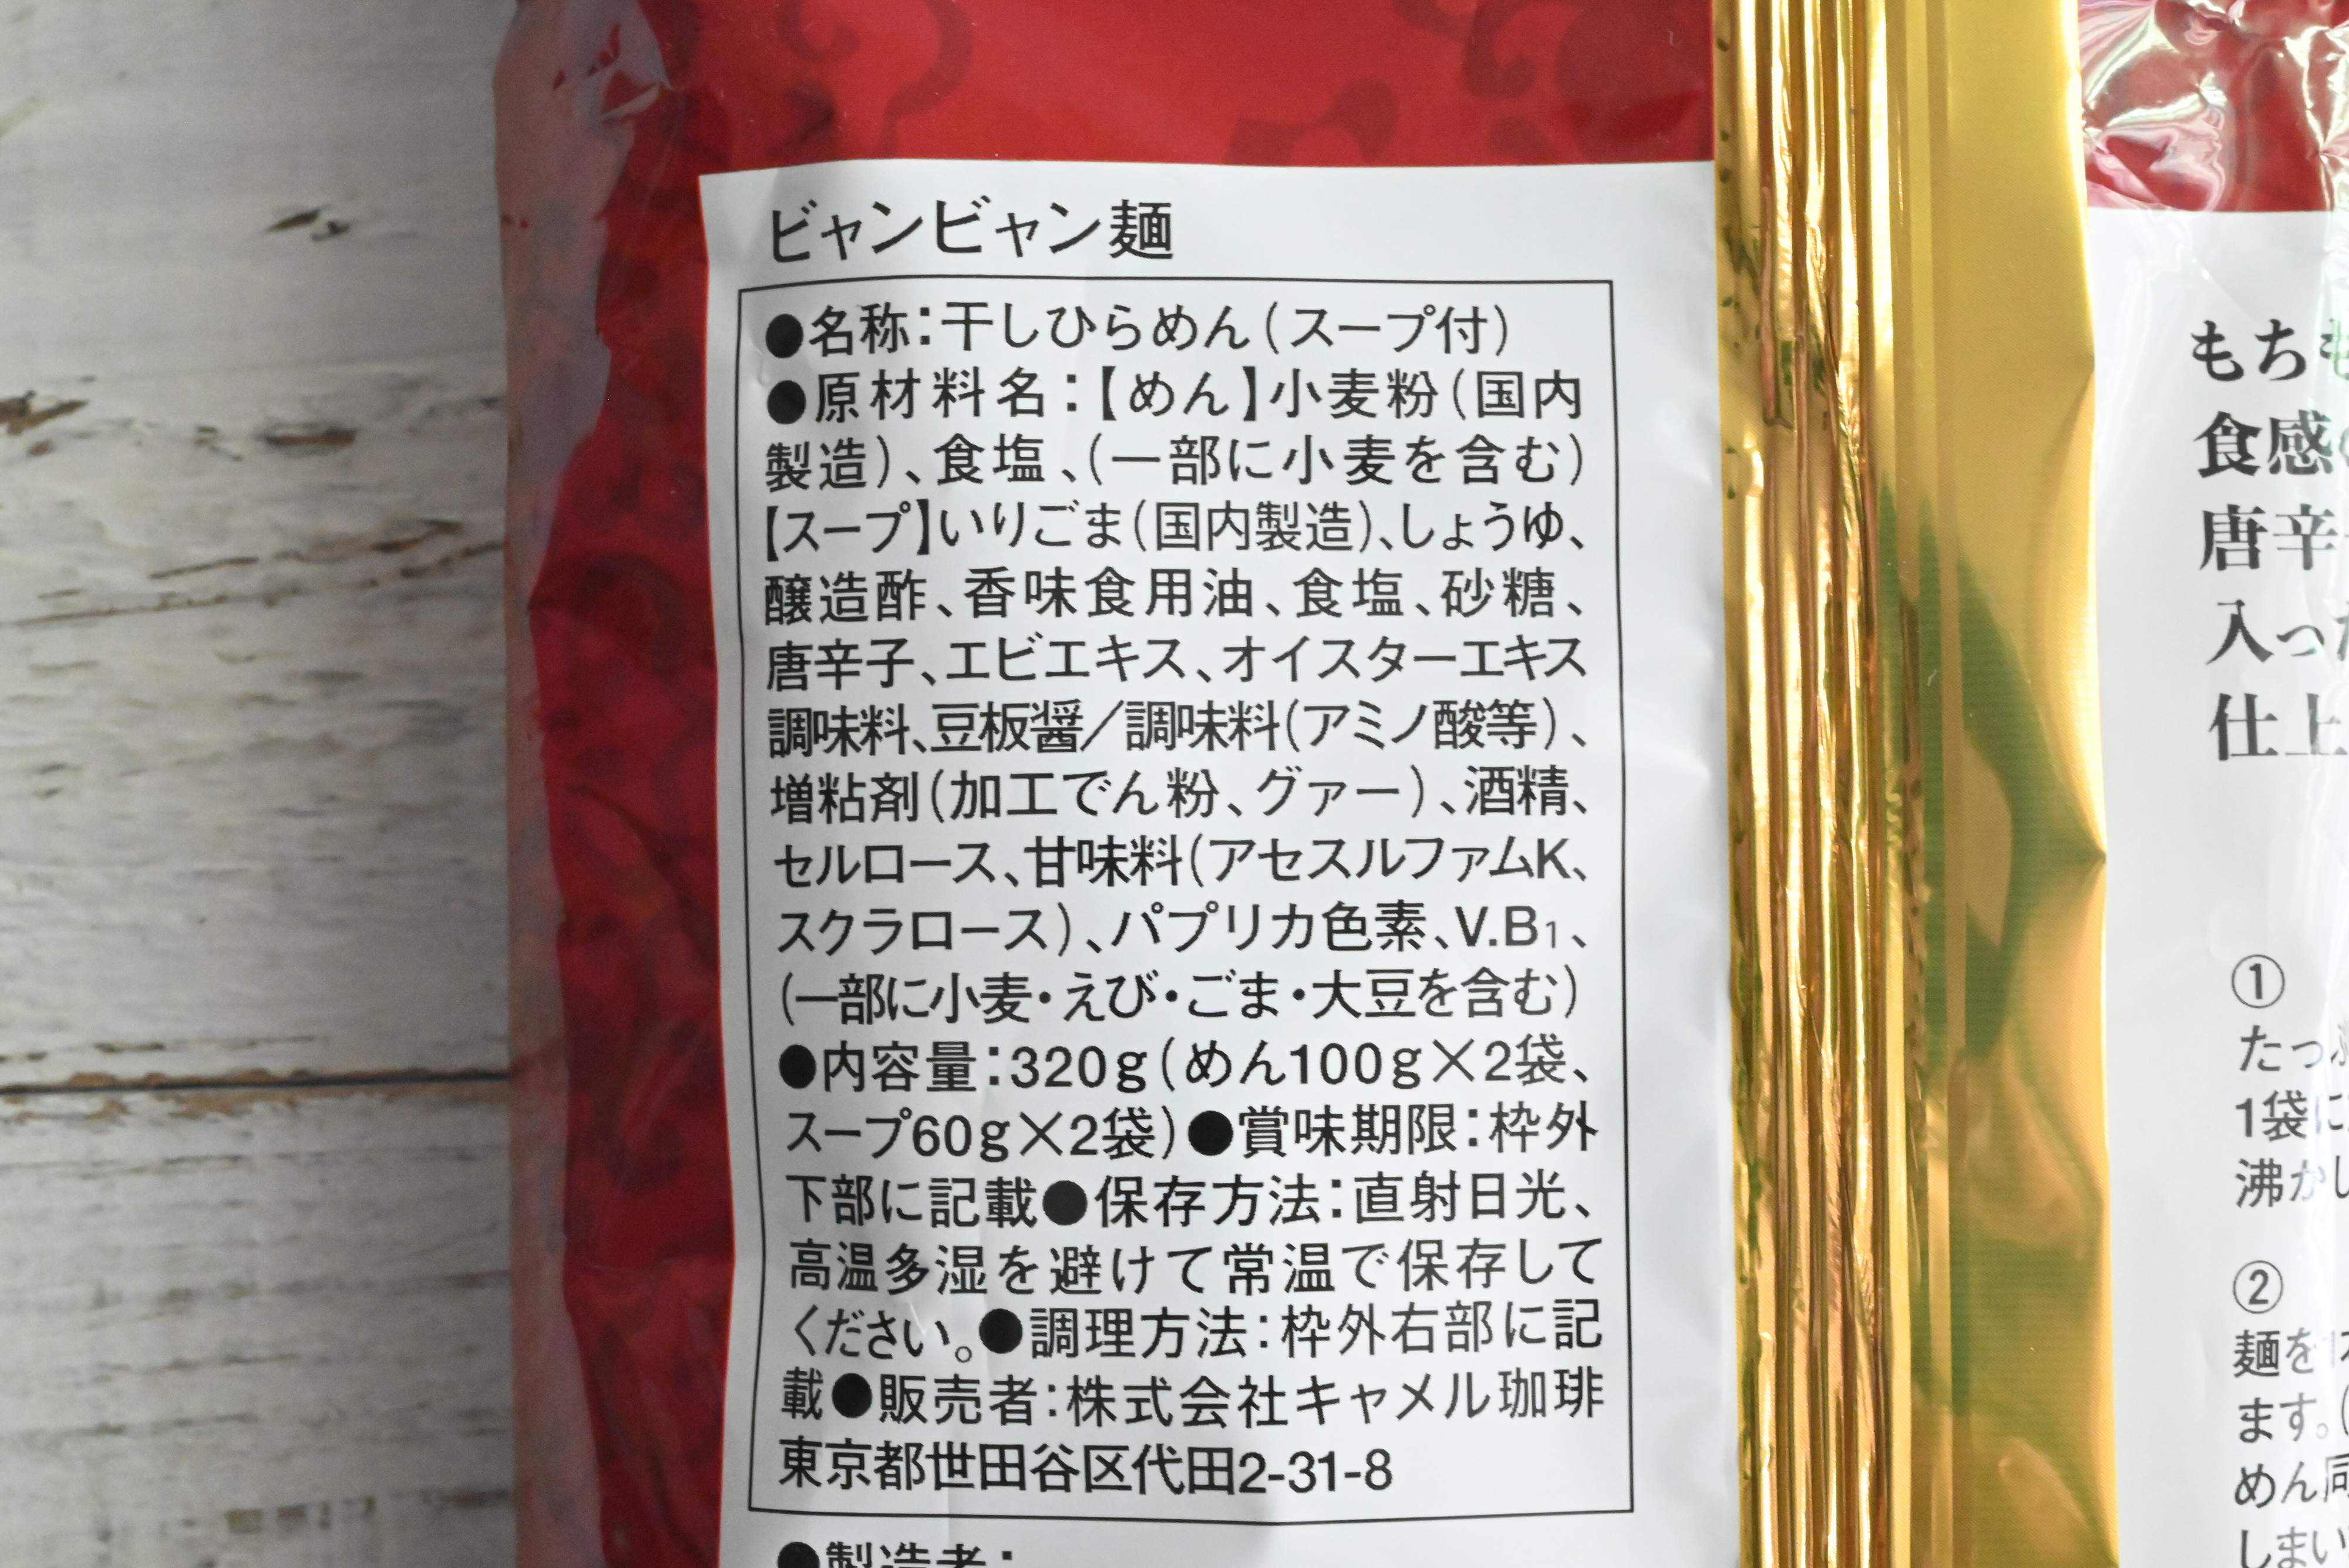 ビャンビャン麺
●名称：干しひらめん（スープ付）
●原材料名：【めん】小麦粉（国内
製造）、食塩、（一部に小麦を含む）
【スープ】いりごま（国内製造）、しょうゆ、
醸造酢、香味食用油、食塩、砂糖、
唐辛子、エビエキス、オイスターエキス
調味料、豆板醤／調味料（アミノ酸等）、
増粘剤（加工でん粉、グァー）、酒精、
セルロース、甘味料（アセスルファムK、
スクラロース）、パプリカ色素、V.B₁、
（一部に小麦・えび・ごま・大豆を含む）
●内容量：320g（めん100g×2袋、
スープ60g×2袋）●賞味期限：枠外
下部に記載●保存方法：直射日光、
高温多湿を避けて常温で保存して
ください。●調理方法：枠外右部に記
載●販売者：株式会社キャメル珈琲
東京都世田谷区代田2-31-8
●製造者：
もち
食感
唐辛
入っ
仕上
①
たっ
1袋に
沸かし
②
麺を
ます。（
めん同
しまい